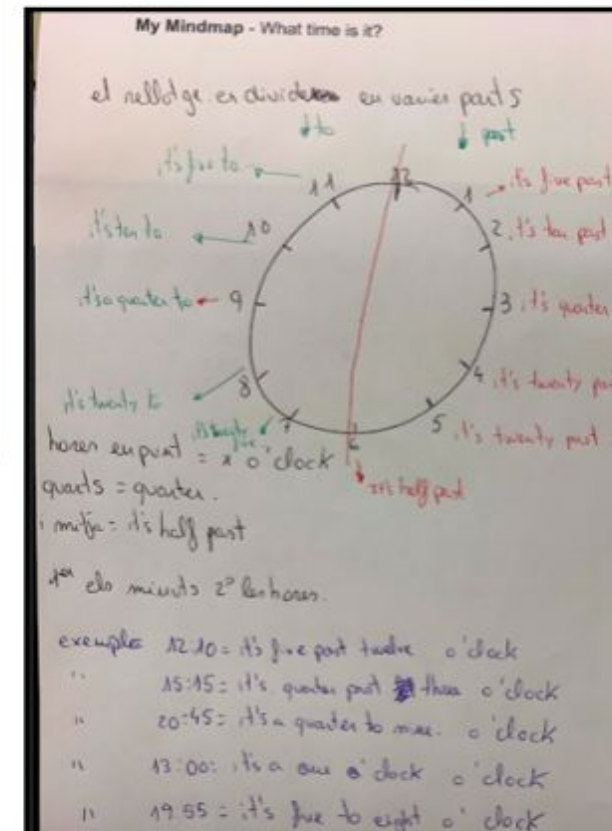 My Mindmap - What time is it?
el rellotge es divideix en varies parts
to
past
12
it's five to
11
1 it's five past
it's ten to
10
2. it's ten past
it's a quarter to
9
3 it's quarter
it's twenty to
8
4 it's twenty
it's twenty five
7
5 it's twenty past
6
it's half past
hores en punt = x o'clock
quarts = quarter.
i mitja = it's half past
1er els minuts 2º les hores.
exemple 12:10 = it's five past twelve o'clock
" 15:15 = it's quarter past three o'clock
" 20:45 = it's a quarter to nine. o'clock
" 13:00: it's a one o'clock o'clock
" 19:55 = it's five to eight o'clock